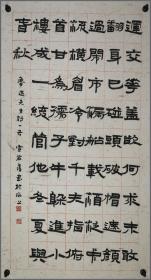 運交華蓋欲何求未敢
翻身已碰頭破帽遮顏
過鬧市漏船載酒泛中
流橫眉冷對千夫指俯
首甘為孺子牛躲進小
樓成一統管他冬夏與
春秋
魯迅先生詩一首